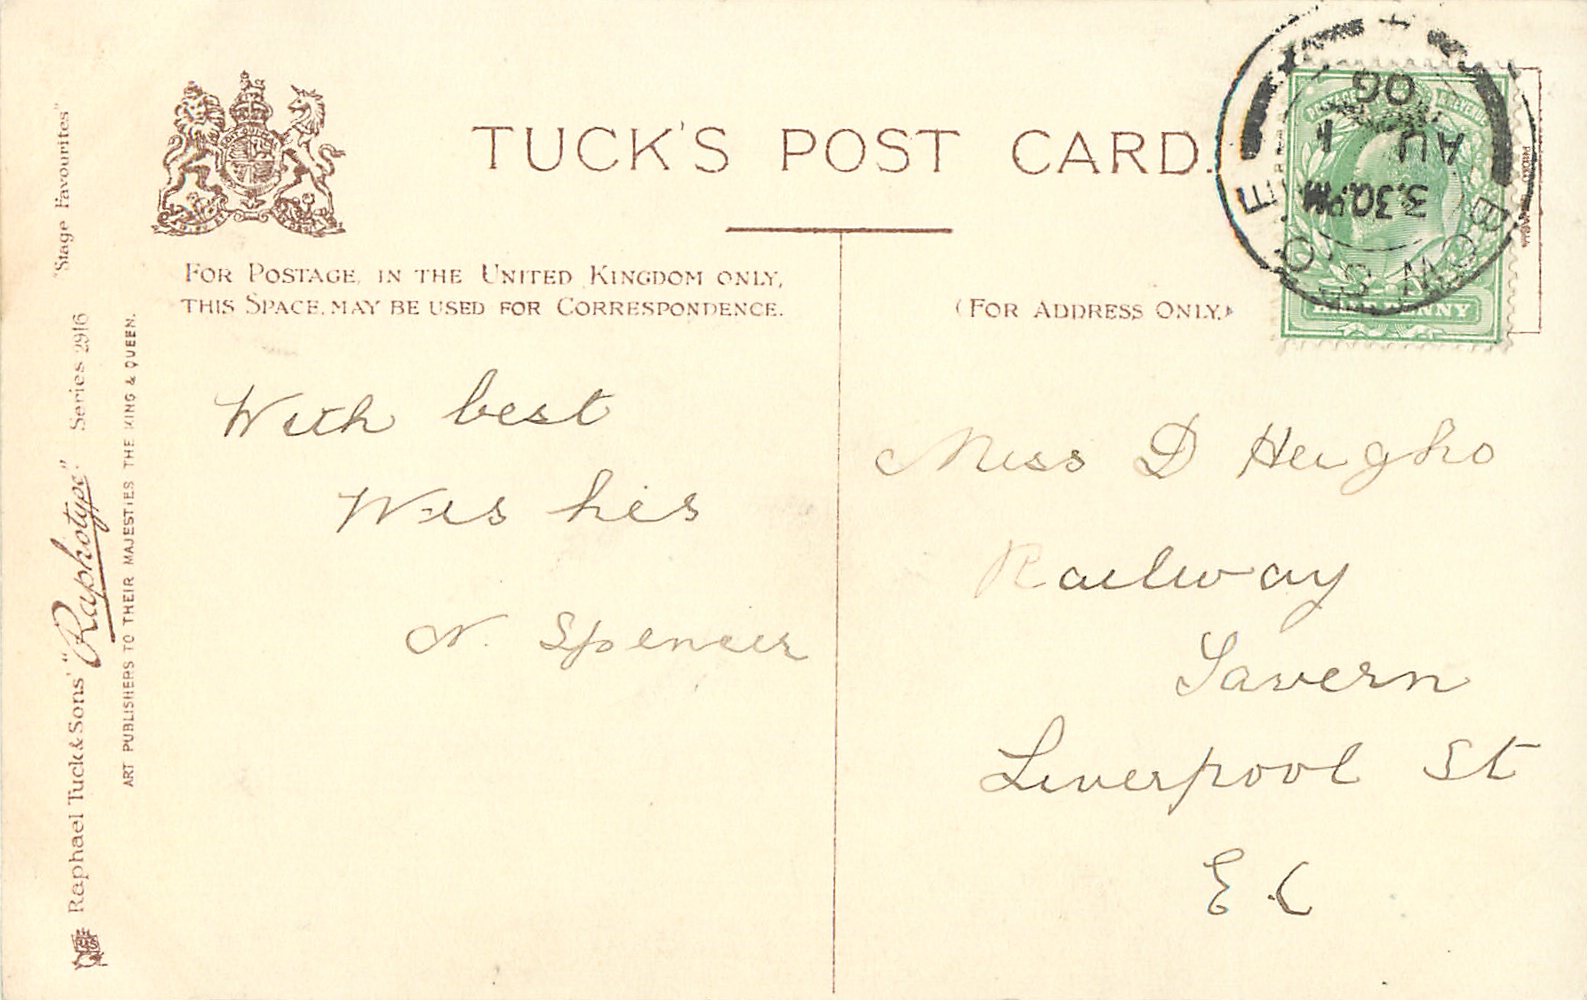 TUCK'S POST CARD.
FOR POSTAGE, IN THE UNITED KINGDOM ONLY,
THIS SPACE, MAY BE USED FOR CORRESPONDENCE.
(FOR ADDRESS ONLY.)
With best
Wishes
N. Spencer
Miss D Heigho
Railway
Tavern
Liverpool St
E C
3.30PM
AU 1
06
HALFPENNY
"Stage Favourites"
Raphael Tuck & Sons' "Raphotype" Series 2916
ART PUBLISHERS TO THEIR MAJESTIES THE KING & QUEEN.